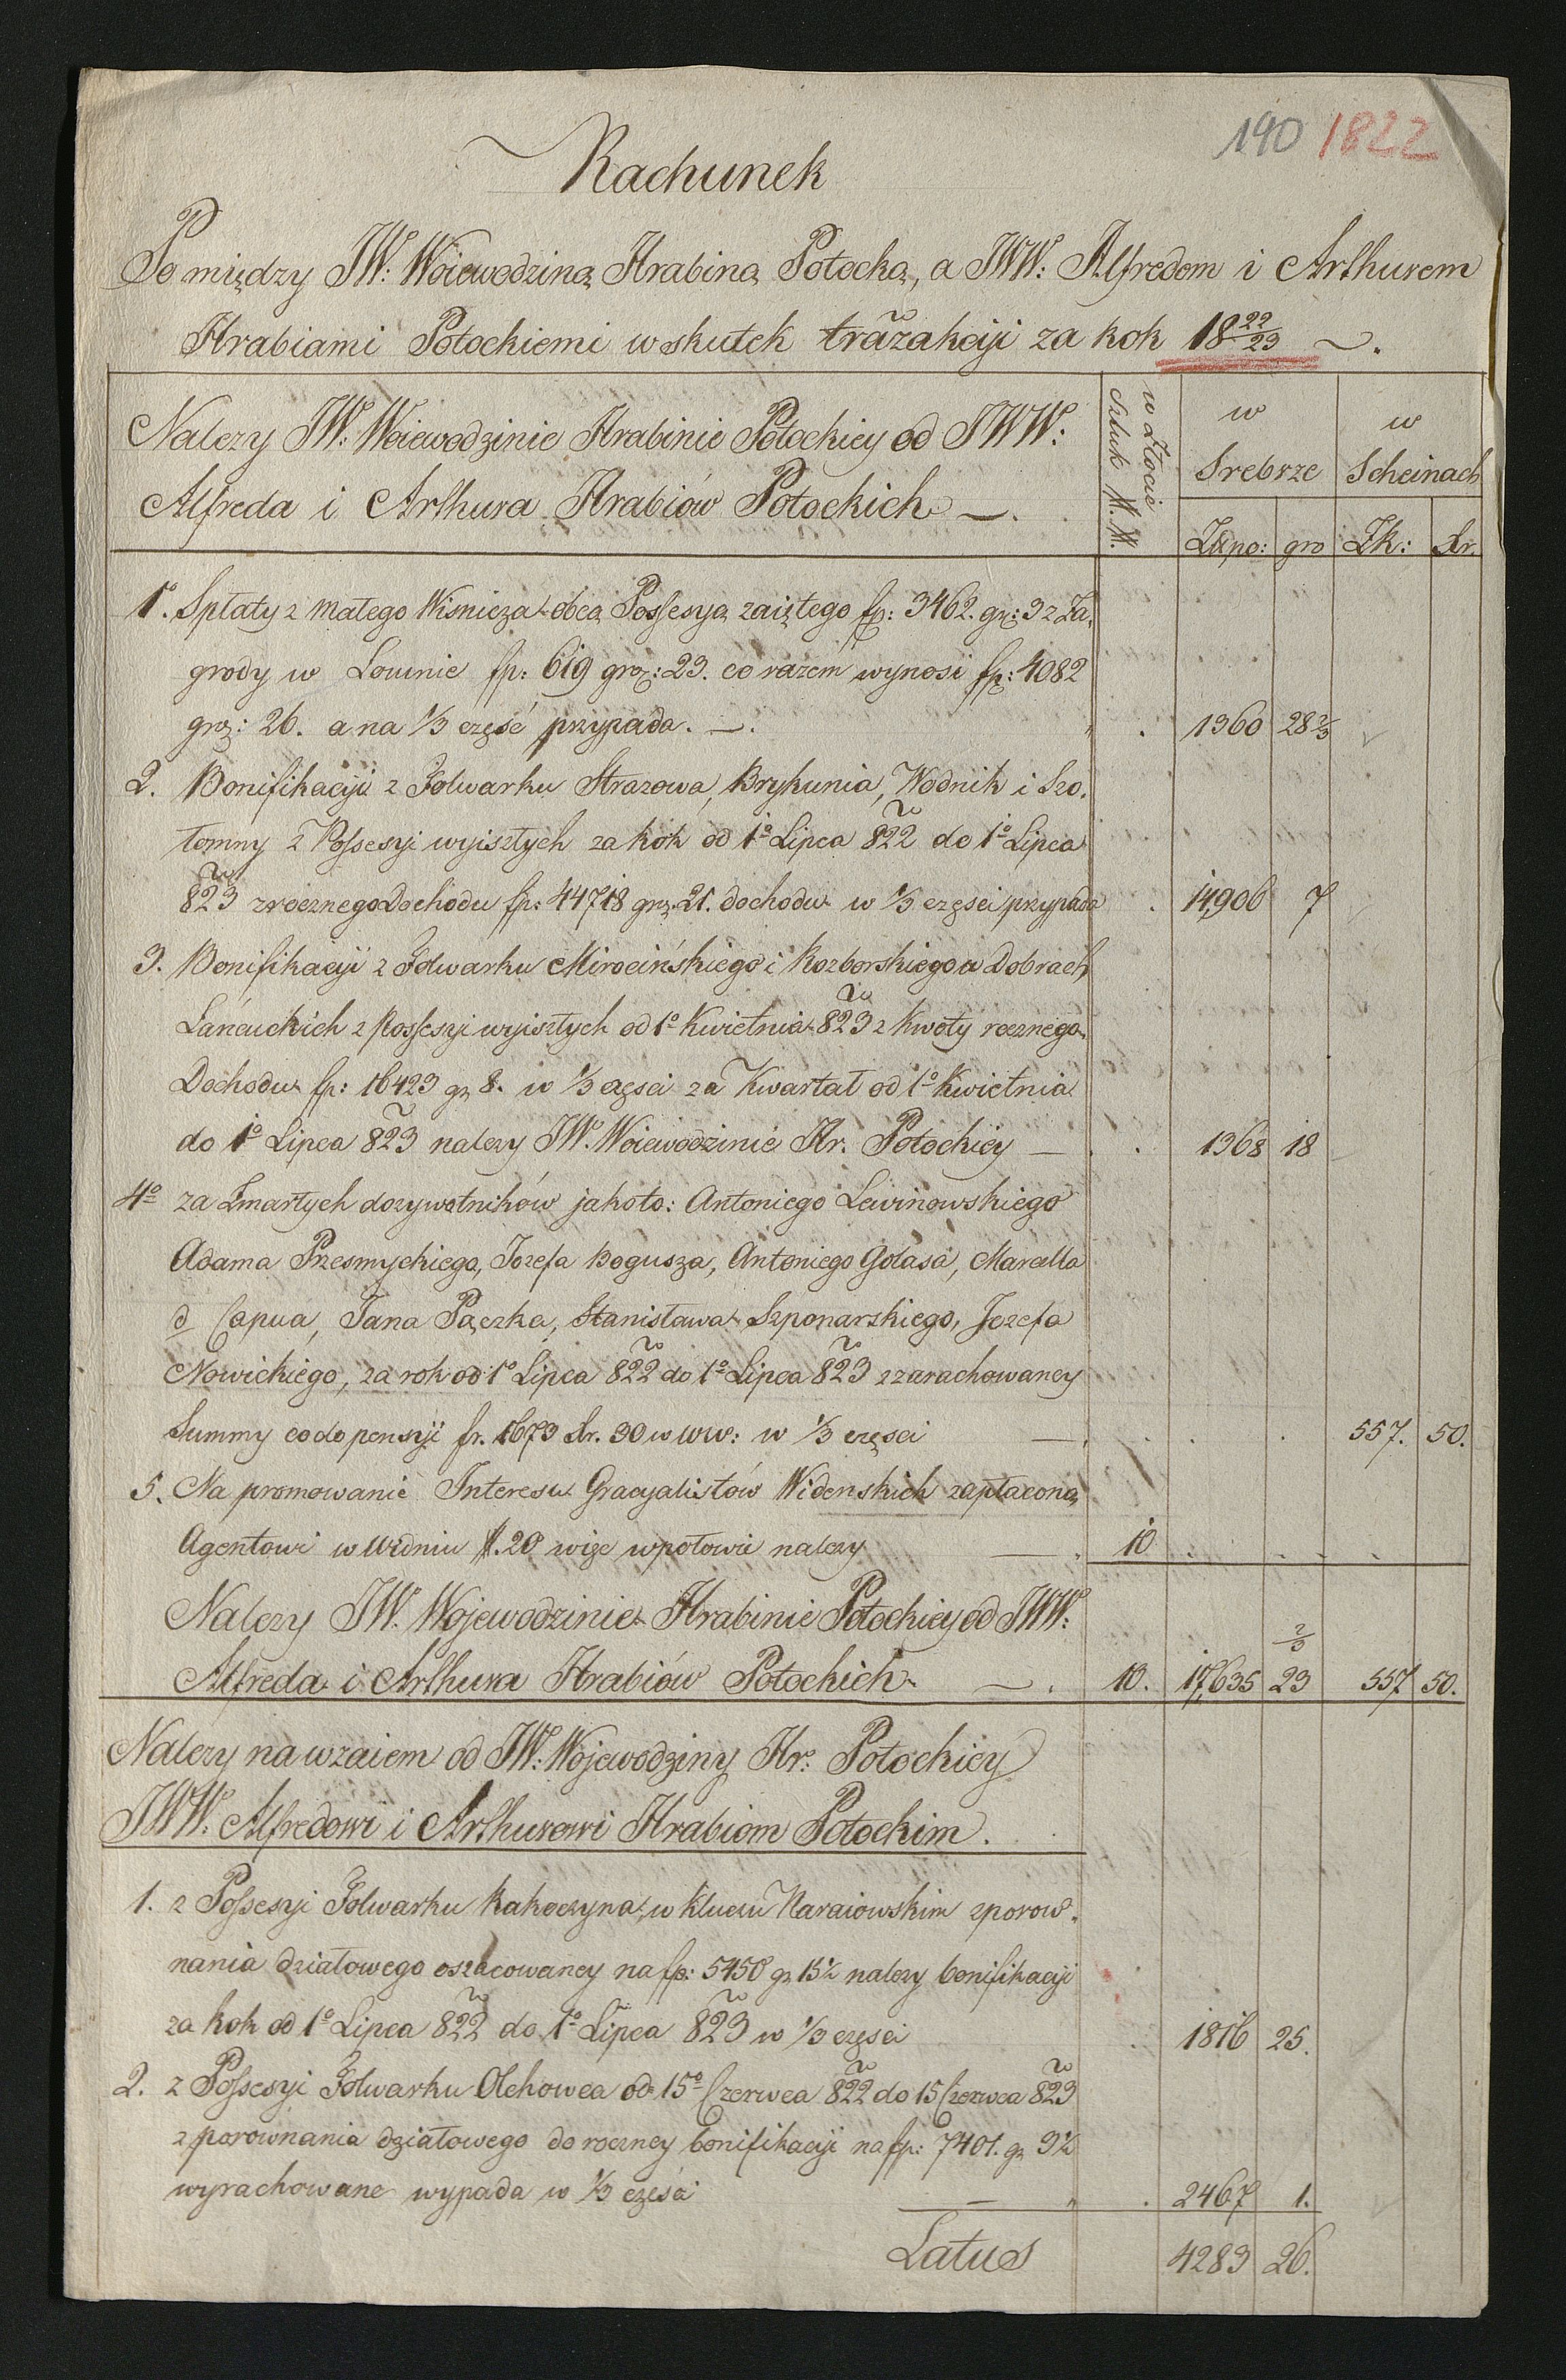 190 1822
Rachunek
Pomiędzy JW: Woiewodziną Hrabiną Potocką, a JWW: Alfredem i Arthurem
Hrabiami Potockiemi w skutek trãzakcyi za Rok 18 22/23 ~.
Nalezy JW: Woiewodzinie Hrabinie Potockiey od JWW:
Alfreda i Arthura Hrabiów Potockich —.
w Złocie Sztuk #. #.
w Srebrze
w Scheinach
Złlpo: gro Zk: Xr.
1º. Spłaty z Małego Wisnicza obcą Possesyą zaiętego fp: 3462. grz: 3 z Za-
grody w Lownie fp: 619 grz: 23. co razem wynosi fp: 4082
grz: 26. a na 1/3 część przypada. —. 1360 28 2/3
2. Bonifikacyi z Folwarku Strazowa, Brykunia, Wodnik i Szo-
tomny z Possesyi wyiszłych za Rok od 1º Lipca 822 do 1º Lipca
823 z rocznego Dochodu fp: 44718 grz. 21. dochodu w 1/3 częsci przypada 14,906 7
3. Bonifikacyi z Folwarku Mirocińskiego i Rozborskiego w Dobrach
Łańcuckich z Possesyi wyiszłych od 1º Kwietnia 823 z Kwoty rocznego
Dochodu fp: 16423 gr 8. w 1/3 częsci za Kwartał od 1º Kwietnia
do 1º Lipca 823 nalezy JW. Woiewodzinie Hr. Potockiey — 1368 18
4º za Zmarłych dozywotników jakoto: Antoniego Lewinowskiego
Adama Przesmyckiego, Jozefa Bogusza, Antoniego Golasa, Marcella
d Capua, Jana Pączka, Stanisława Szponarskiego, Jozefa
Nowickiego, za rok od 1º Lipca 822 do 1º Lipca 823 z zarachowaney
Summy co do pensyi fr. 1673 Xr. 30 w WW: w 1/3 częsci — 557. 50.
5. Na promowanie Interesu Gracyalistów Widenskich zapłacono
Agentowi w Widniu #. 20 więc w połowie nalezy — 10
Nalezy JW. Wojewodzinie Hrabinie Potockiey od JWW:
Alfreda i Arthura Hrabiów Potockich — . 10. 17,635 23 2/3 557 50.
Nalezy nawzaiem od JW: Wojewodziny Hr: Potockiey
JWW: Alfredowi i Arthurowi Hrabiom Potockim.
1. z Possesyi Folwarku Rakoczyna, w Kluczu Naraiowskim z porow-
nania działowego oszacowaney na fp: 5450 gr 15 1/2 nalezy bonifikacyi
za Rok od 1º Lipca 822 do 1º Lipca 823 w 1/3 częsci 1816 25.
2. z Possesyi Folwarku Olchowca od 15º Czerwca 822 do 15 Czerwca 823
z porównania działowego do roczney bonifikacyi na fp: 7401. gr 3 1/2
wyrachowane wypada w 1/3 częsci — 2467 1.
Latus 4283 26.